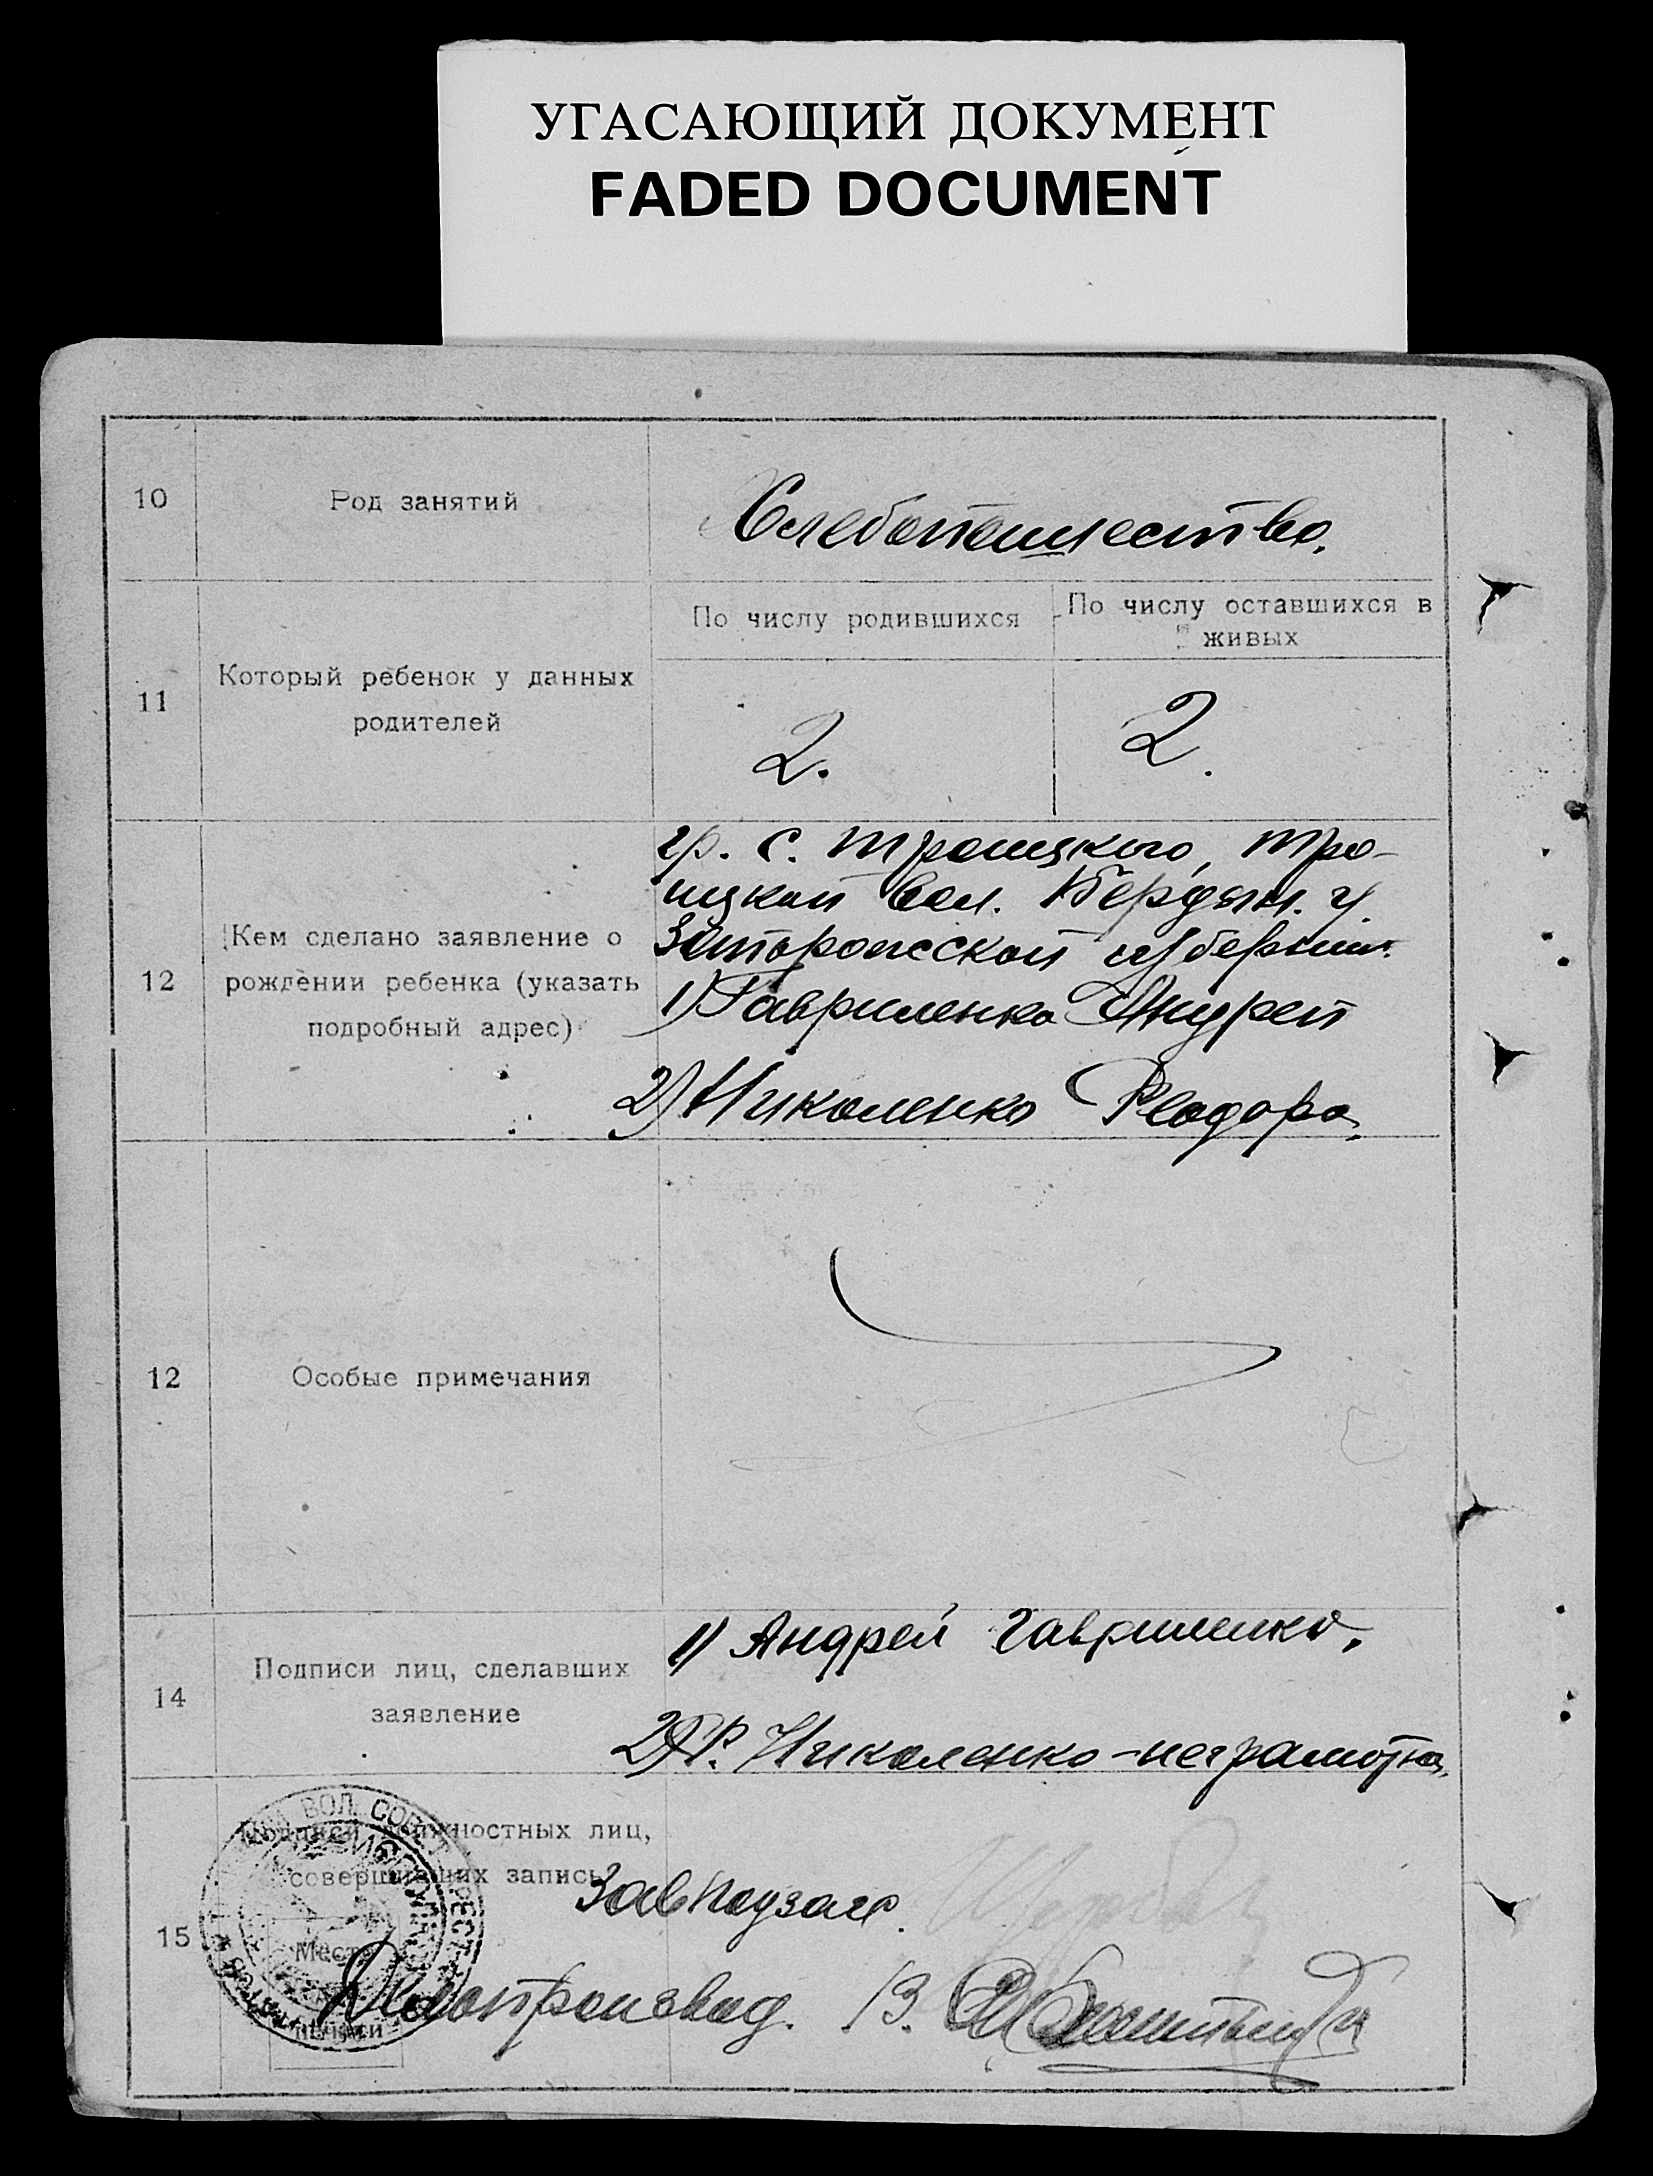 УГАСАЮЩИЙ ДОКУМЕНТ
FADED DOCUMENT
10
Род занятий
Хлебопашество.
11
Который ребенок у данных
родителей
По числу родившихся
По числу оставшихся в
живых
2.
2.
12
Кем сделано заявление о
рождении ребенка (указать
подробный адрес)
гр. с. Троицкого, Тро-
ицкой вол. Бердян. у.
Запорожской губернии.
1) Гавриленко Андрей
2) Николенко Феодора.
12
Особые примечания
14
Подписи лиц, сделавших
заявление
1) Андрей Гавриленко.
2) Ф. Николенко - неграмотна.
15
Подписи должностных лиц,
совершивших запись
Место
печати
ВОЛ. СОВ
Завподзаг.
Делопроизвод.